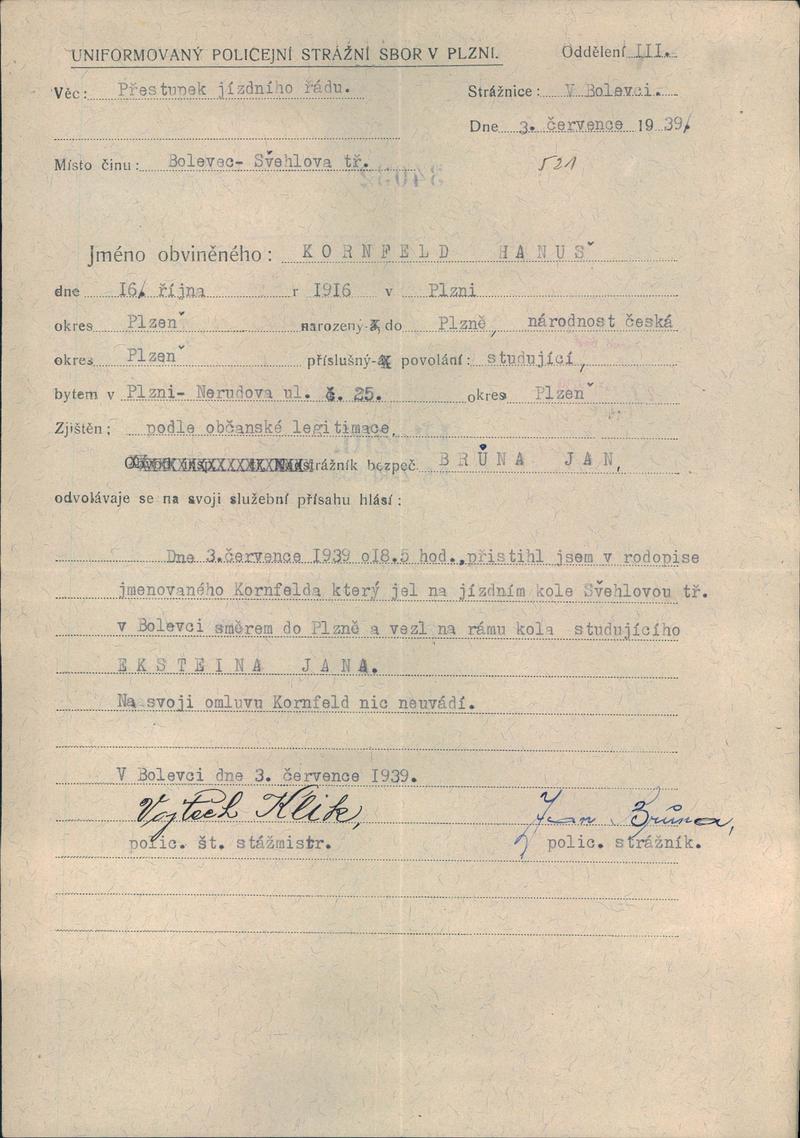 UNIFORMOVANÝ POLICEJNÍ STRÁŽNÍ SBOR V PLZNI. Oddělení III.
Věc: Přestupek jízdního řádu. Strážnice: V Bolevci.
Dne 3. července 1939/
Místo činu: Bolevec- Švehlova tř. 521
Jméno obviněného: KORNFELD HANUŠ
dne 16/ října r 1916 v Plzni
okres Plzeň narozený-á, do Plzně, národnost česká
okres Plzeň příslušný-á povolání: studující,
bytem v Plzni- Nerudova ul. č. 25. okres Plzeň
Zjištěn; podle občanské legitimace,
strážník bezpeč. BRŮNA JAN,
odvolávaje se na svoji služební přísahu hlásí:
Dne 3.července 1939 o18.5 hod.,přistihl jsem v rodopise
jmenovaného Kornfelda který jel na jízdním kole Švehlovou tř.
v Bolevci směrem do Plzně a vezl na rámu kola studujícího
EKSTEINA JANA.
Na svoji omluvu Kornfeld nic neuvádí.
V Bolevci dne 3. července 1939.
Vojtěch Klik, Jan Brůna,
polic. št. stážmistr. polic. strážník.